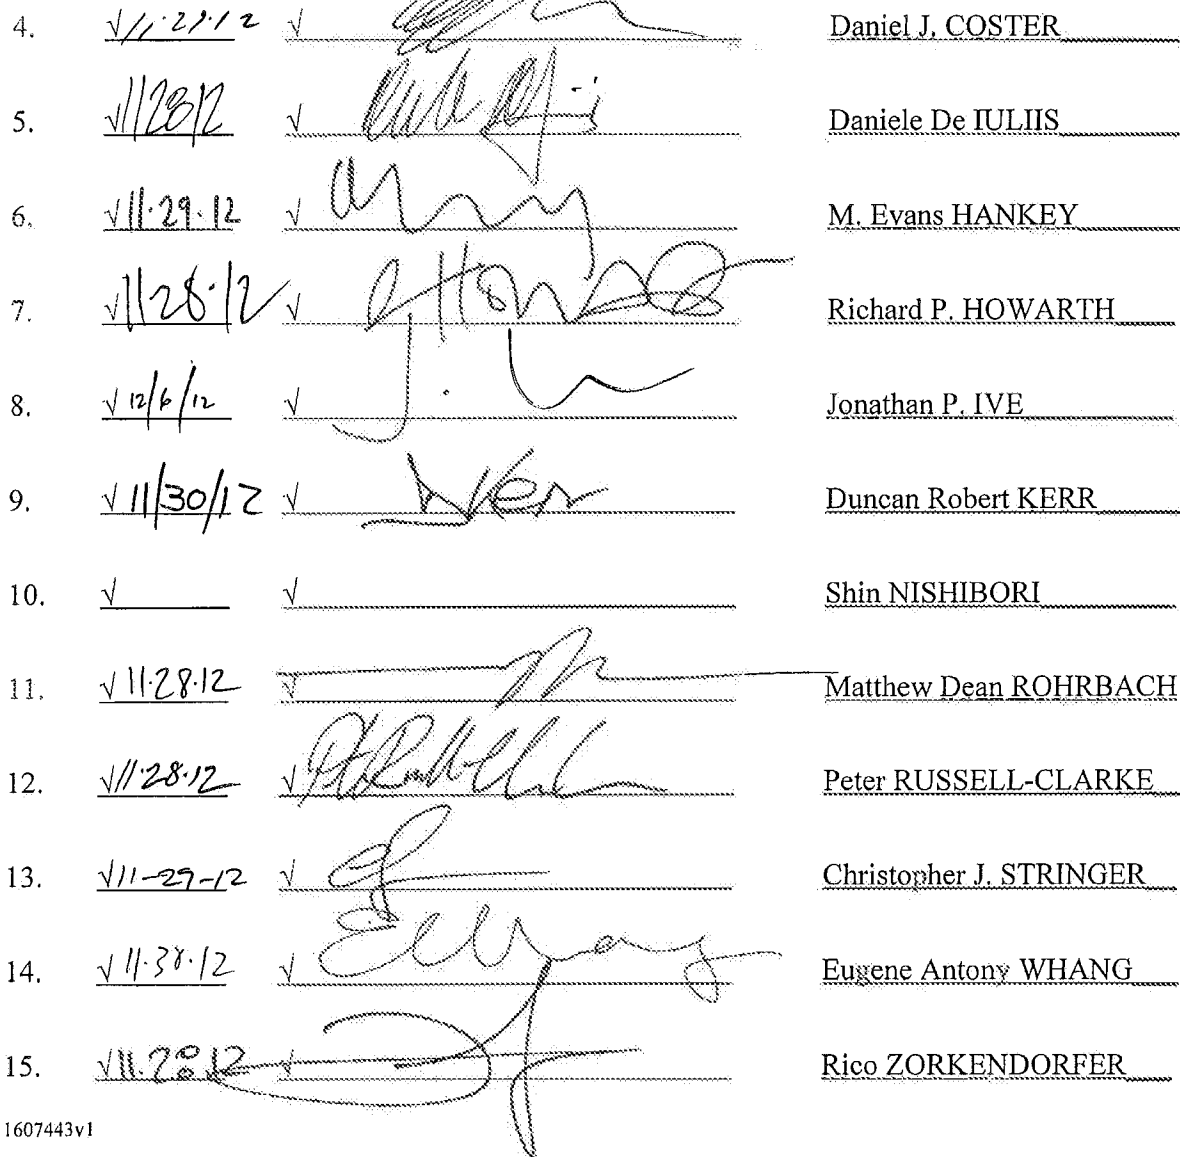 4. √ 11·29·12 √ Daniel J. COSTER
5. √ 11/28/12 √ Daniele De IULIIS
6. √ 11·29·12 √ M. Evans HANKEY
7. √ 11·28·12 √ Richard P. HOWARTH
8. √ 12/6/12 √ Jonathan P. IVE
9. √ 11/30/12 √ Duncan Robert KERR
10. √ √ Shin NISHIBORI
11. √ 11·28·12 √ Matthew Dean ROHRBACH
12. √ 11·28·12 √ Peter RUSSELL-CLARKE
13. √ 11-29-12 √ Christopher J. STRINGER
14. √ √ Eugene Antony WHANG
15. √ 11.28.12 √ Rico ZORKENDORFER
1607443v1